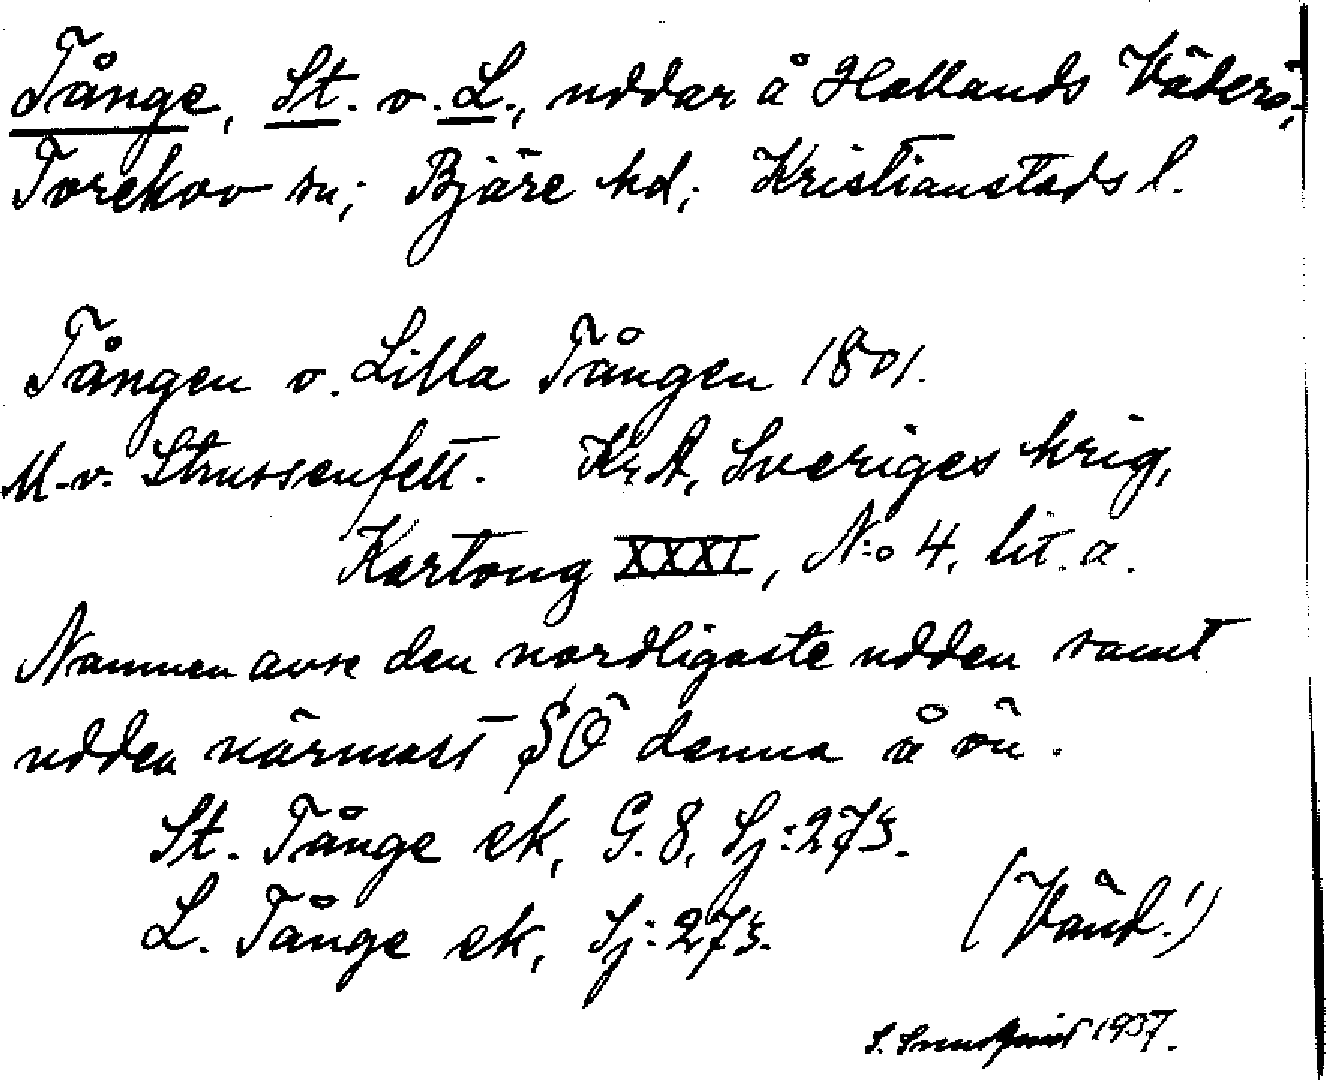 Tånge, St. o. L., uddar å Hallands Väderö,
Torekov sn; Bjäre hd; Kristianstads l.
Tången o. Lilla Tången 1801.
M. v. Strussenfelt. Kr.A, Sveriges krig,
Kartong XXXI, N:o 4. lit. a.
Namnen avse den nordligaste udden samt
udden närmast SÖ denna å ön.
St. Tånge ek, G. 8, Sj: 273.
L. Tånge ek, Sj: 273.
(Vänd!)
1937.